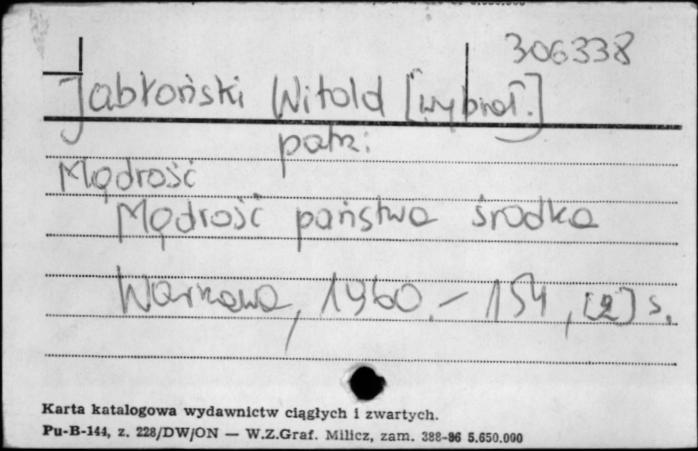 306338
Jabłoński Witold [wybrał.]
patrz:
Mądrość
Mądrość państwa środka
Warszawa, 1960. – 154, [2] s.
Karta katalogowa wydawnictw ciągłych i zwartych.
Pu-B-144, z. 228/DW/ON — W.Z.Graf. Milicz, zam. 388-86 5.650.000